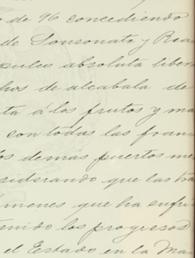 o de 96 concediendo
de Sonsonate y Rea
pulco absoluta liber
chos de alcabala de
ta á los frutos y ma
con todas las fran
los demas puertos me
siderando que las ha
imenes que ha
tenido los progresos
el Estado en la Ma